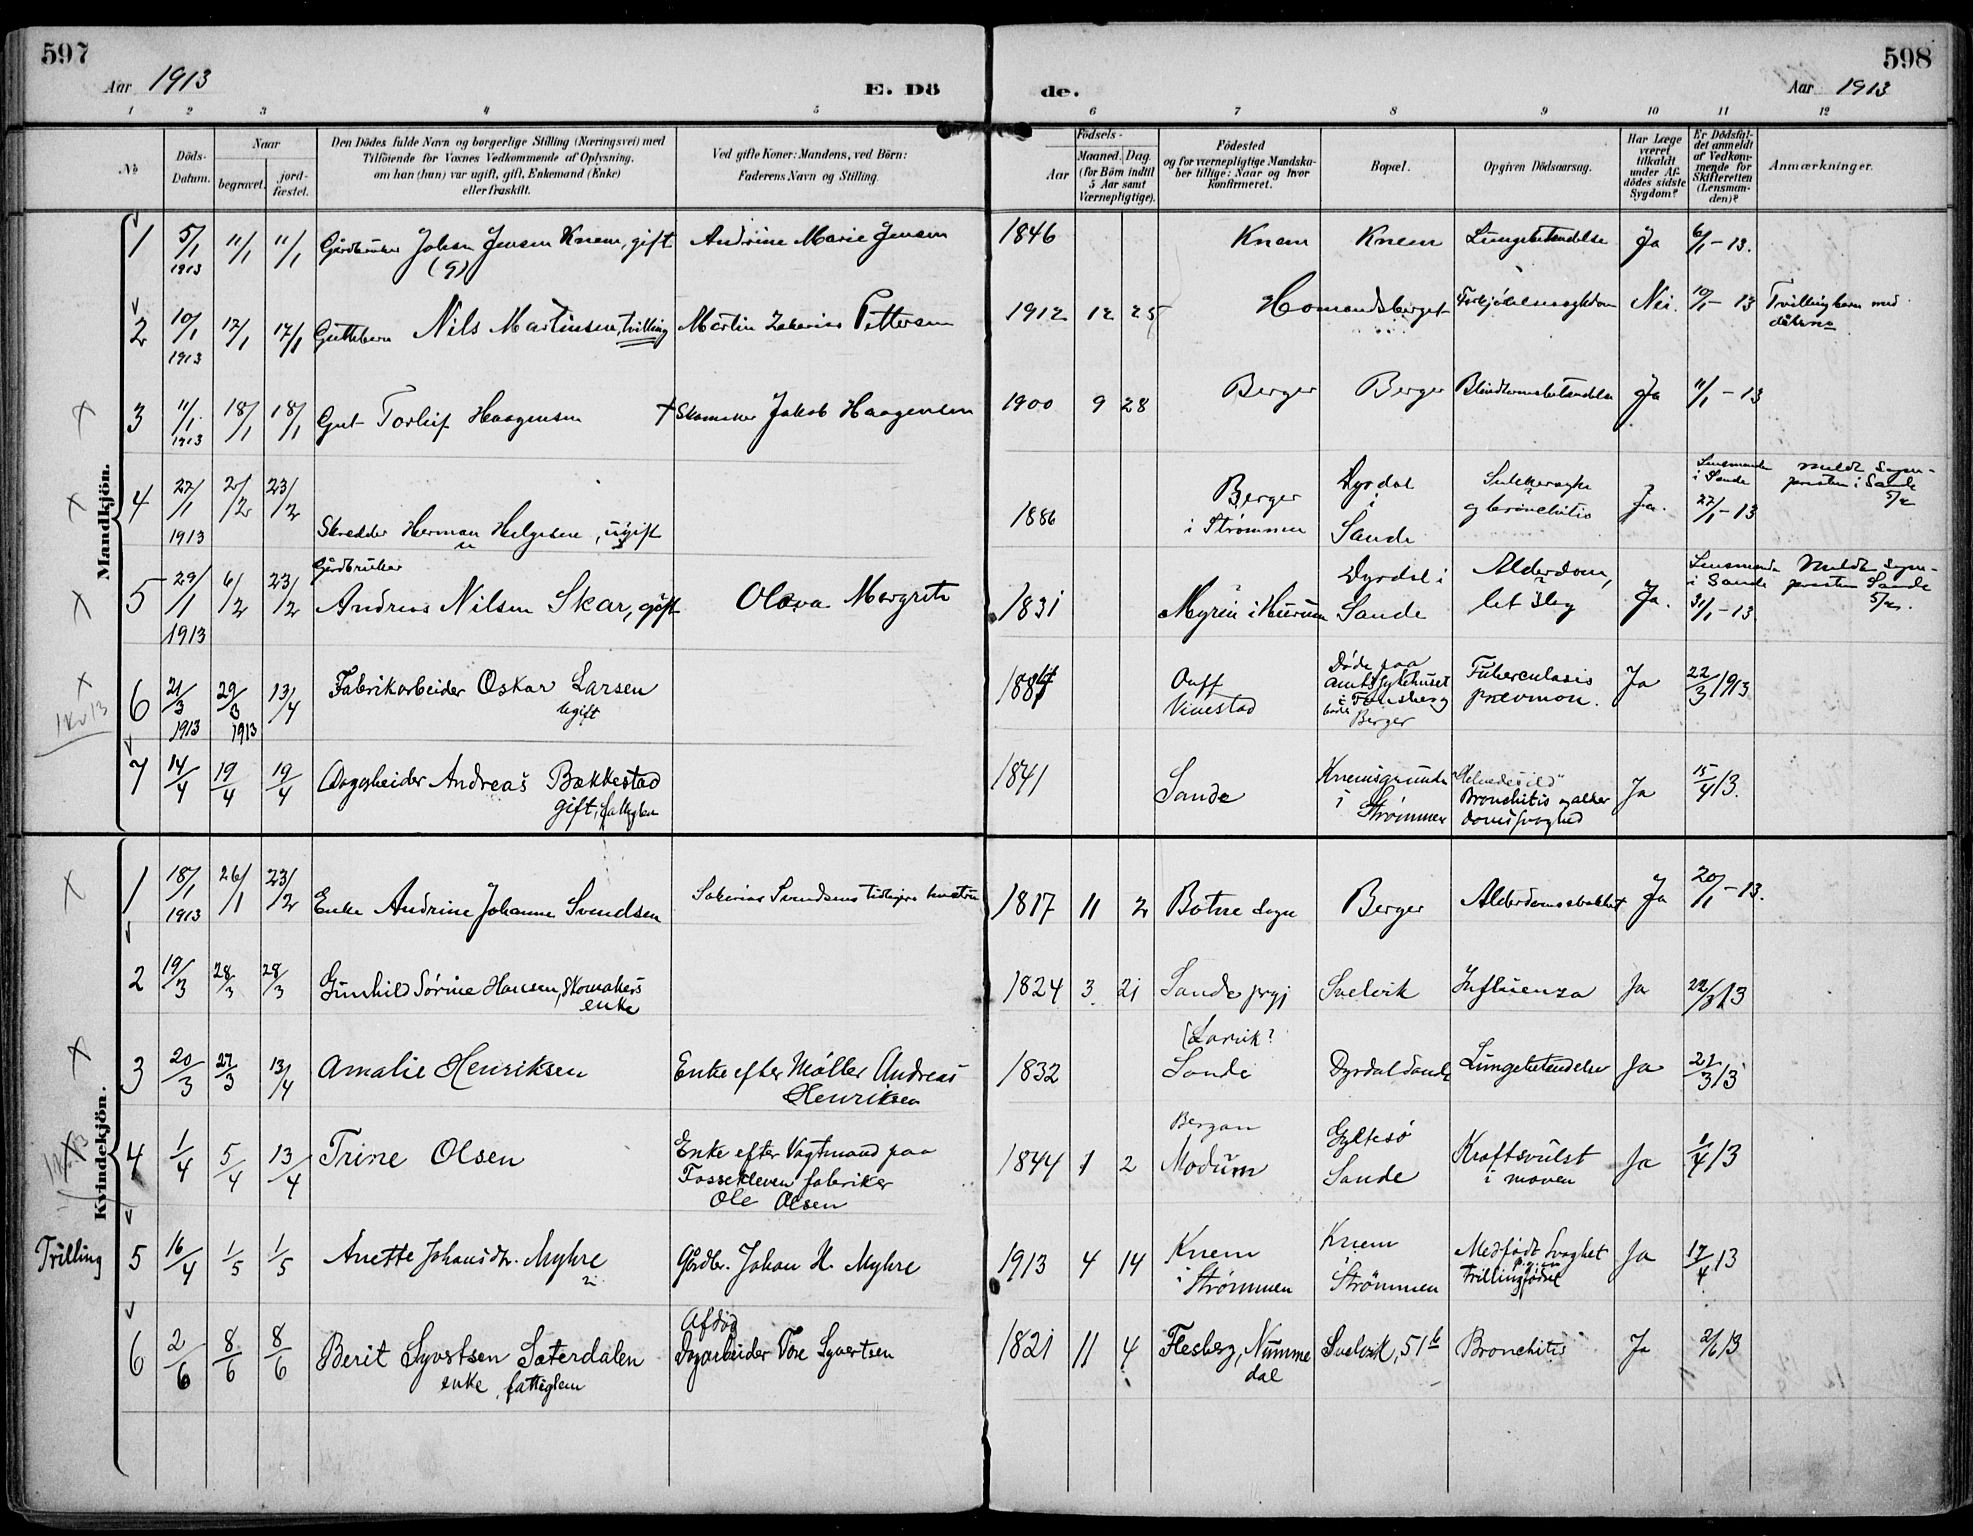 597
598
Aar 1913
E. Dö
de.
Aar 1913
1 2 3 4 5 6 7 8 9 10 11 12
No
Döds-
Datum.
Naar
begravet.
jord-
fæstet.
Den Dödes fulde Navn og borgerlige Stilling (Næringsvei) med
Tilföiende for Voxnes Vedkommende af Oplysning,
om han (hun) var ugift, gift, Enkemand (Enke)
eller fraskilt.
Ved gifte Koner: Mandens, ved Börn:
Faderens Navn og Stilling.
Födsels-
Aar
Maaned. Dag
(for Börn indtil
5 Aar samt
Værnepligtige).
Födested
og for værnepligtige Mandska-
ber tillige: Naar og hvor
konfirmeret.
Bopæl.
Opgiven Dödsaarsag.
Har Læge
været
tilkaldt
under Af-
dödes sidste
Sygdom?
Er Dödsfal-
det anmeldt
af Vedkom-
mende for
Skifteretten
(Lensman-
den)?
Anmærkninger.
Mandkjön.
1 5/1 1913 11/1 11/1 Gårdbruker Johan Jensen Knem, gift Andrine Marie Jensen 1846 Knem Knem Lungebetendelse Ja 6/1-13.
(9)
2 10/1 1913 17/1 17/1 Guttebarn Nils Martinsen, tvilling Martin Zakarias Pettersen 1912 12 25 Homandsberget Forkjölelsessykdom Nei. 10/1-13 Tvillingbarn med
3 11/1 1913 18/1 18/1 Gut Torleif Haagensen + Skomaker Jakob Haagensen 1900 9 28 Berger Berger Blindtarmsbetendelse Ja 11/1-13
4 27/1 1913 2/2 23/2 Skredder Herman Helgesen, ugift 1886 Berger
i Strømmen Dyrdal
i
Sande Sukkersyke
og bronchitis Ja. Lensmanden
i Sande
27/1-13 Meldt sogne-
presten i Sande
5/2
5 29/1 1913 6/2 23/2 Gårdbruker
Andreas Nilsen Skar, gift Olava Margrete 1831 Myren i Hurum Dyrdal i
Sande Alderdom,
let slag Ja. Lensmanden
i Sande
31/1-13. Meldt sogne-
presten Sande
5/2.
1 Kv 13
6 21/3 1913 29/3 1913 13/4 Fabrikarbeider Oskar Larsen
Ugift 1887 Vivestad Døde paa
Amtssykehuset
i Tønsberg
Berger Tuberculosis
pulmon. Ja 22/3 1913
7 14/4 19/4 19/4 Dagarbeider Andreas Bakkestad
gift, fattiglem 1841 Sande Knemsgrunden
i
Strømmen "Helvedesild"
Bronchitis og alder
domssvaghed Ja 15/4 13.
Kvindekjön.
1 18/1 1913 26/1 23/2 Enke Andrine Johanne Svendsen Sakarias Svendsens tidligere hustru 1817 11 2 Botne sogn Berger Alderdomssvakhet Ja 20/1-13.
2 19/3 28/3 28/3 Gunhild Sørine Hansen, Skomakers
enke 1824 3 21 Sande prgj Svelvik Influenza Ja 22/3 13
3 20/3 27/3 13/4 Amalie Henriksen Enke efter Møller Andreas
Henriksen 1832 (Larvik?
Sande Dyrdal Sande Lungebetendelse Ja 22/3 13
4 1/4 5/4 13/4 Trine Olsen Enke efter Vagtmand paa
Fossekleven fabriker
Ole Olsen 1844 1 2 Bergan
Modum Gyltesø
Sande Kræftsvulst
i maven Ja 1/4 13
Trilling
5 16/4 1/5 1/5 Anette Johansdtr. Myhre Gårdbr. Johan H. Myhre 1913 4 14 Knem
i
Strømmen Knem
i
Strömmen Medfödt Svaghet
p.g. en
Trillingfødsel Ja 17/4 13
6 2/6 8/6 8/6 Berit Syvertsen Sæterdalen
enke, fattiglem Afdød
Dagarbeider Tore Syvertsen 1821 11 4 Flesberg, Numme
dal Svelvik, 51b Bronchitis Ja 2/6 13